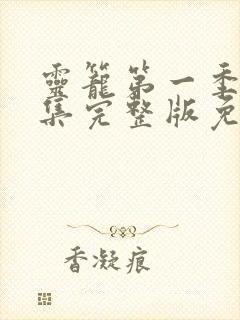 靈籠第一季
集完整版免
香凝痕